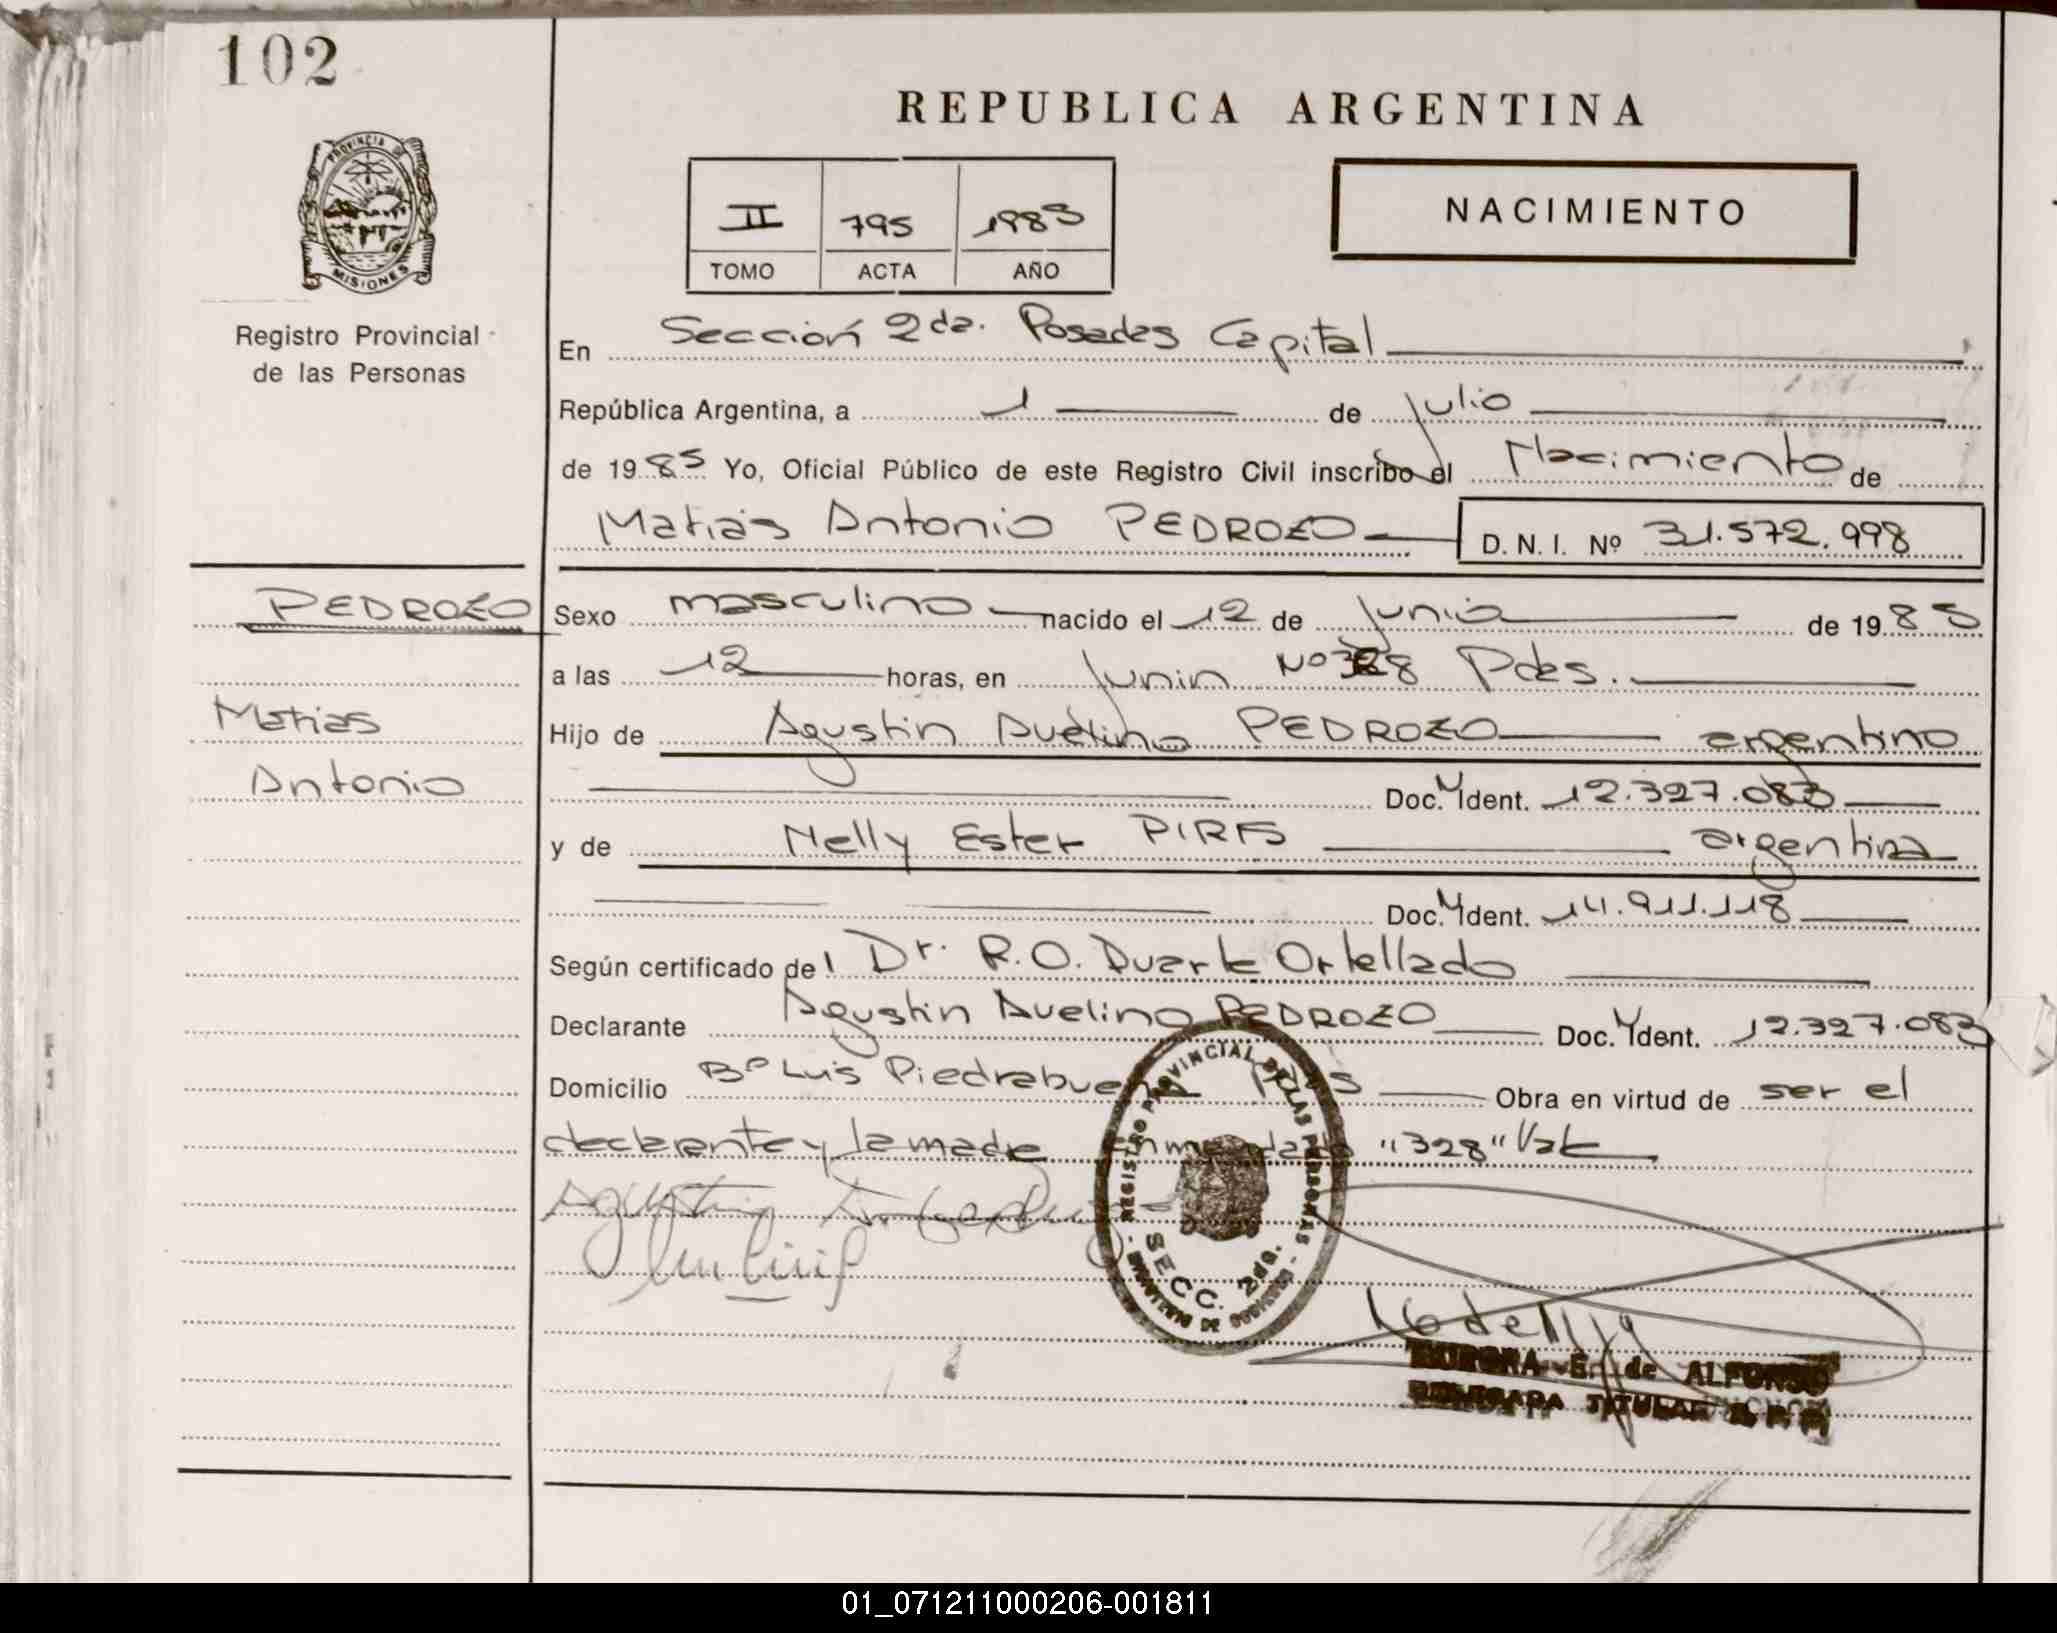 102
REPUBLICA ARGENTINA
PROVINCIA DE
MISIONES
II 795 1985
TOMO ACTA AÑO
NACIMIENTO
Registro Provincial
de las Personas
En Sección 2da. Posadas Capital
República Argentina, a 1 de Julio
de 1985 Yo, Oficial Público de este Registro Civil inscribo el Nacimiento de
Matías Antonio PEDROZO D. N. I. Nº 31.572.998
PEDROZO
Matias
Antonio
Sexo masculino nacido el 12 de Junio de 1985
a las 12 horas, en Junin Nº 328 Pdas.
Hijo de Agustin Avelino PEDROZO argentino
Doc. Ident. 12.327.083
y de Nelly Ester PIRES argentina
Doc. Ident. 14.911.118
Según certificado del Dr. R.O. Duarte Ortellado
Declarante Agustin Avelino PEDROZO Doc. Ident. 12.327.083
Domicilio Bº Luis Piedrabuena Pdas Obra en virtud de ser el
declarante y la madre Enmendado "328" Vale
REGISTRO PROVINCIAL DE LAS PERSONAS
MINISTERIO DE GOBIERNO
SECC. 2da.
E. de ALFONSO
DELEGADA TITULAR R. P. P.
01_071211000206-001811